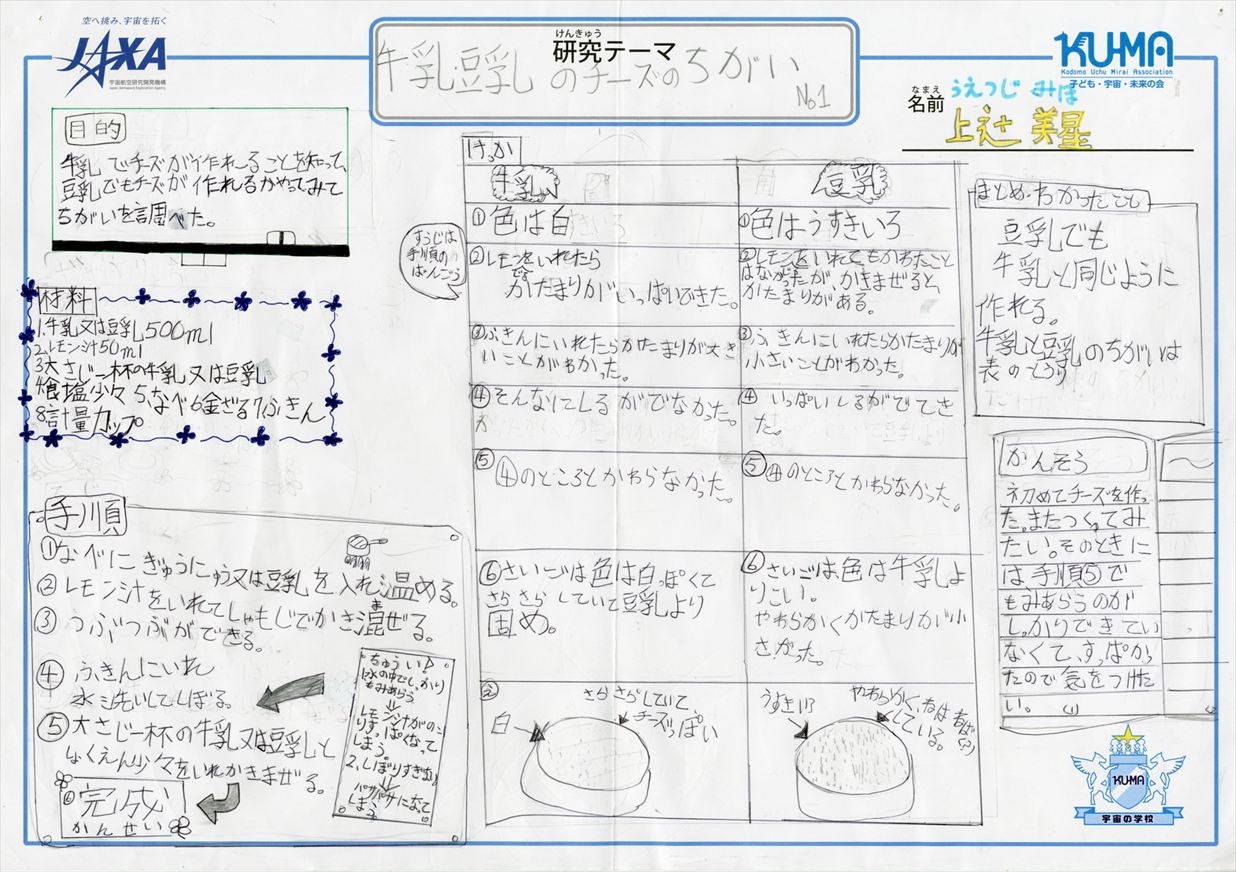 空へ挑み、宇宙を拓く
JAXA
宇宙航空研究開発機構
Japan Aerospace Exploration Agency
けんきゅう
研究テーマ
牛乳・豆乳のチーズのちがい
No1
KUMA
Kodomo Uchu Mirai Association
子ども・宇宙・未来の会
なまえ
名前
うえつじ みほ
上辻 美星
目的
牛乳でチーズが作れることを知って、
豆乳でもチーズが作れるかやってみて
ちがいを調べた。
材料
1.牛乳又は豆乳500ml
2.レモン汁50ml
3大さじ一杯の牛乳又は豆乳
4食塩少々 5,なべ 6金ざる 7,ふきん
8計量カップ
手順
①なべにぎゅうにゅう又は豆乳を入れ温める。
②レモン汁をいれてしゃもじでかき混ぜる。
ま
③つぶつぶができる。
④ふきんにいれ
水洗いしてしぼる。
⑤大さじ一杯の牛乳又は豆乳と
しょくえん少々をいれかきまぜる。
⑥完成
かんせい
ちゅうい
1,水の中でしっかり
もみあらう
レモン汁がのこ
りすっぱくなって
しまう。
2,しぼりすぎない
パサパサになって
しまう
けっか
すうじは
手順の
ばんごう
牛乳
①色は白
②レモンをいれたら
かたまりがいっぱいできた。
③ふきんにいれたらかたまりが大き
いことがわかった。
④そんなにしるがでなかった。
⑤④のところとかわらなかった。
⑥さいごは色は白っぽくて
さらさらしていて豆乳より
固め。
豆乳
①色はうすきいろ
②レモンをいれてもかわったこと
はなかったが、かきまぜると、
かたまりがある。
③ふきんにいれたらかたまりが
小さいことがわかった。
④いっぱいしるがでてき
た。
⑤④のところとかわらなかった。
⑥さいごは色は牛乳よ
りこい。
やわらかくかたまりが小
さかった。
え
白
さらさらしていて、
チーズっぽい
うすきいろ
やわらかく、
している。
まとめ・わかったこと
豆乳でも
牛乳と同じように
作れる。
牛乳と豆乳のちがいは
表のとうり
かんそう
初めてチーズを作っ
た。またつくってみ
たい。そのときに
は手順⑤で
もみあらうのが
しっかりできてい
なくて、すっぱかっ
たので気をつけた
い。 (1)
KUMA
宇宙の学校